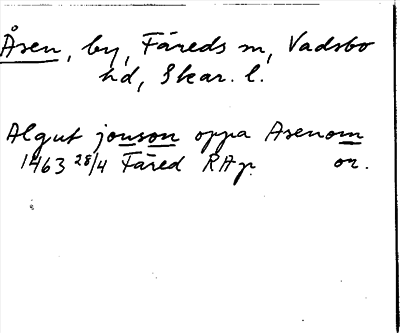 Åsen, by, Färeds sn, Vadsbo
hd, Skar. l.
Algut jonson oppa Asenom
1463 28/4 Färed RAp. or.